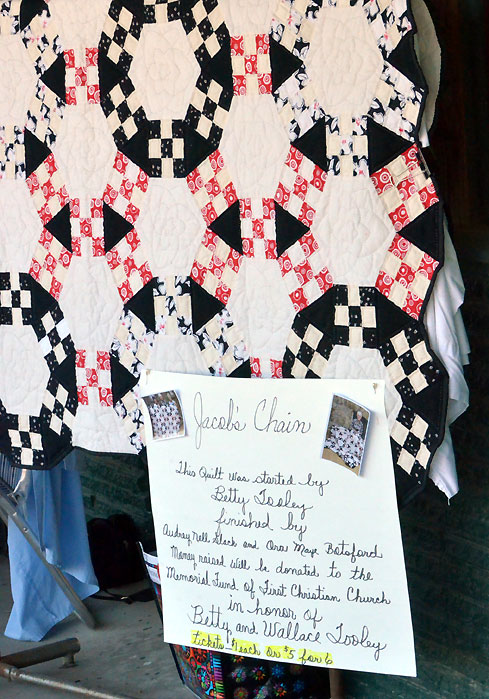 Jacob's Chain
This Quilt was started by
Betty Tooley
finished by
Audrey Nell Slack and Ora Maye Botsford
Money raised will be donated to the
Memorial Fund of First Christian Church
in honor of
Betty and Wallace Tooley
tickets - $1 each or $5 for 6